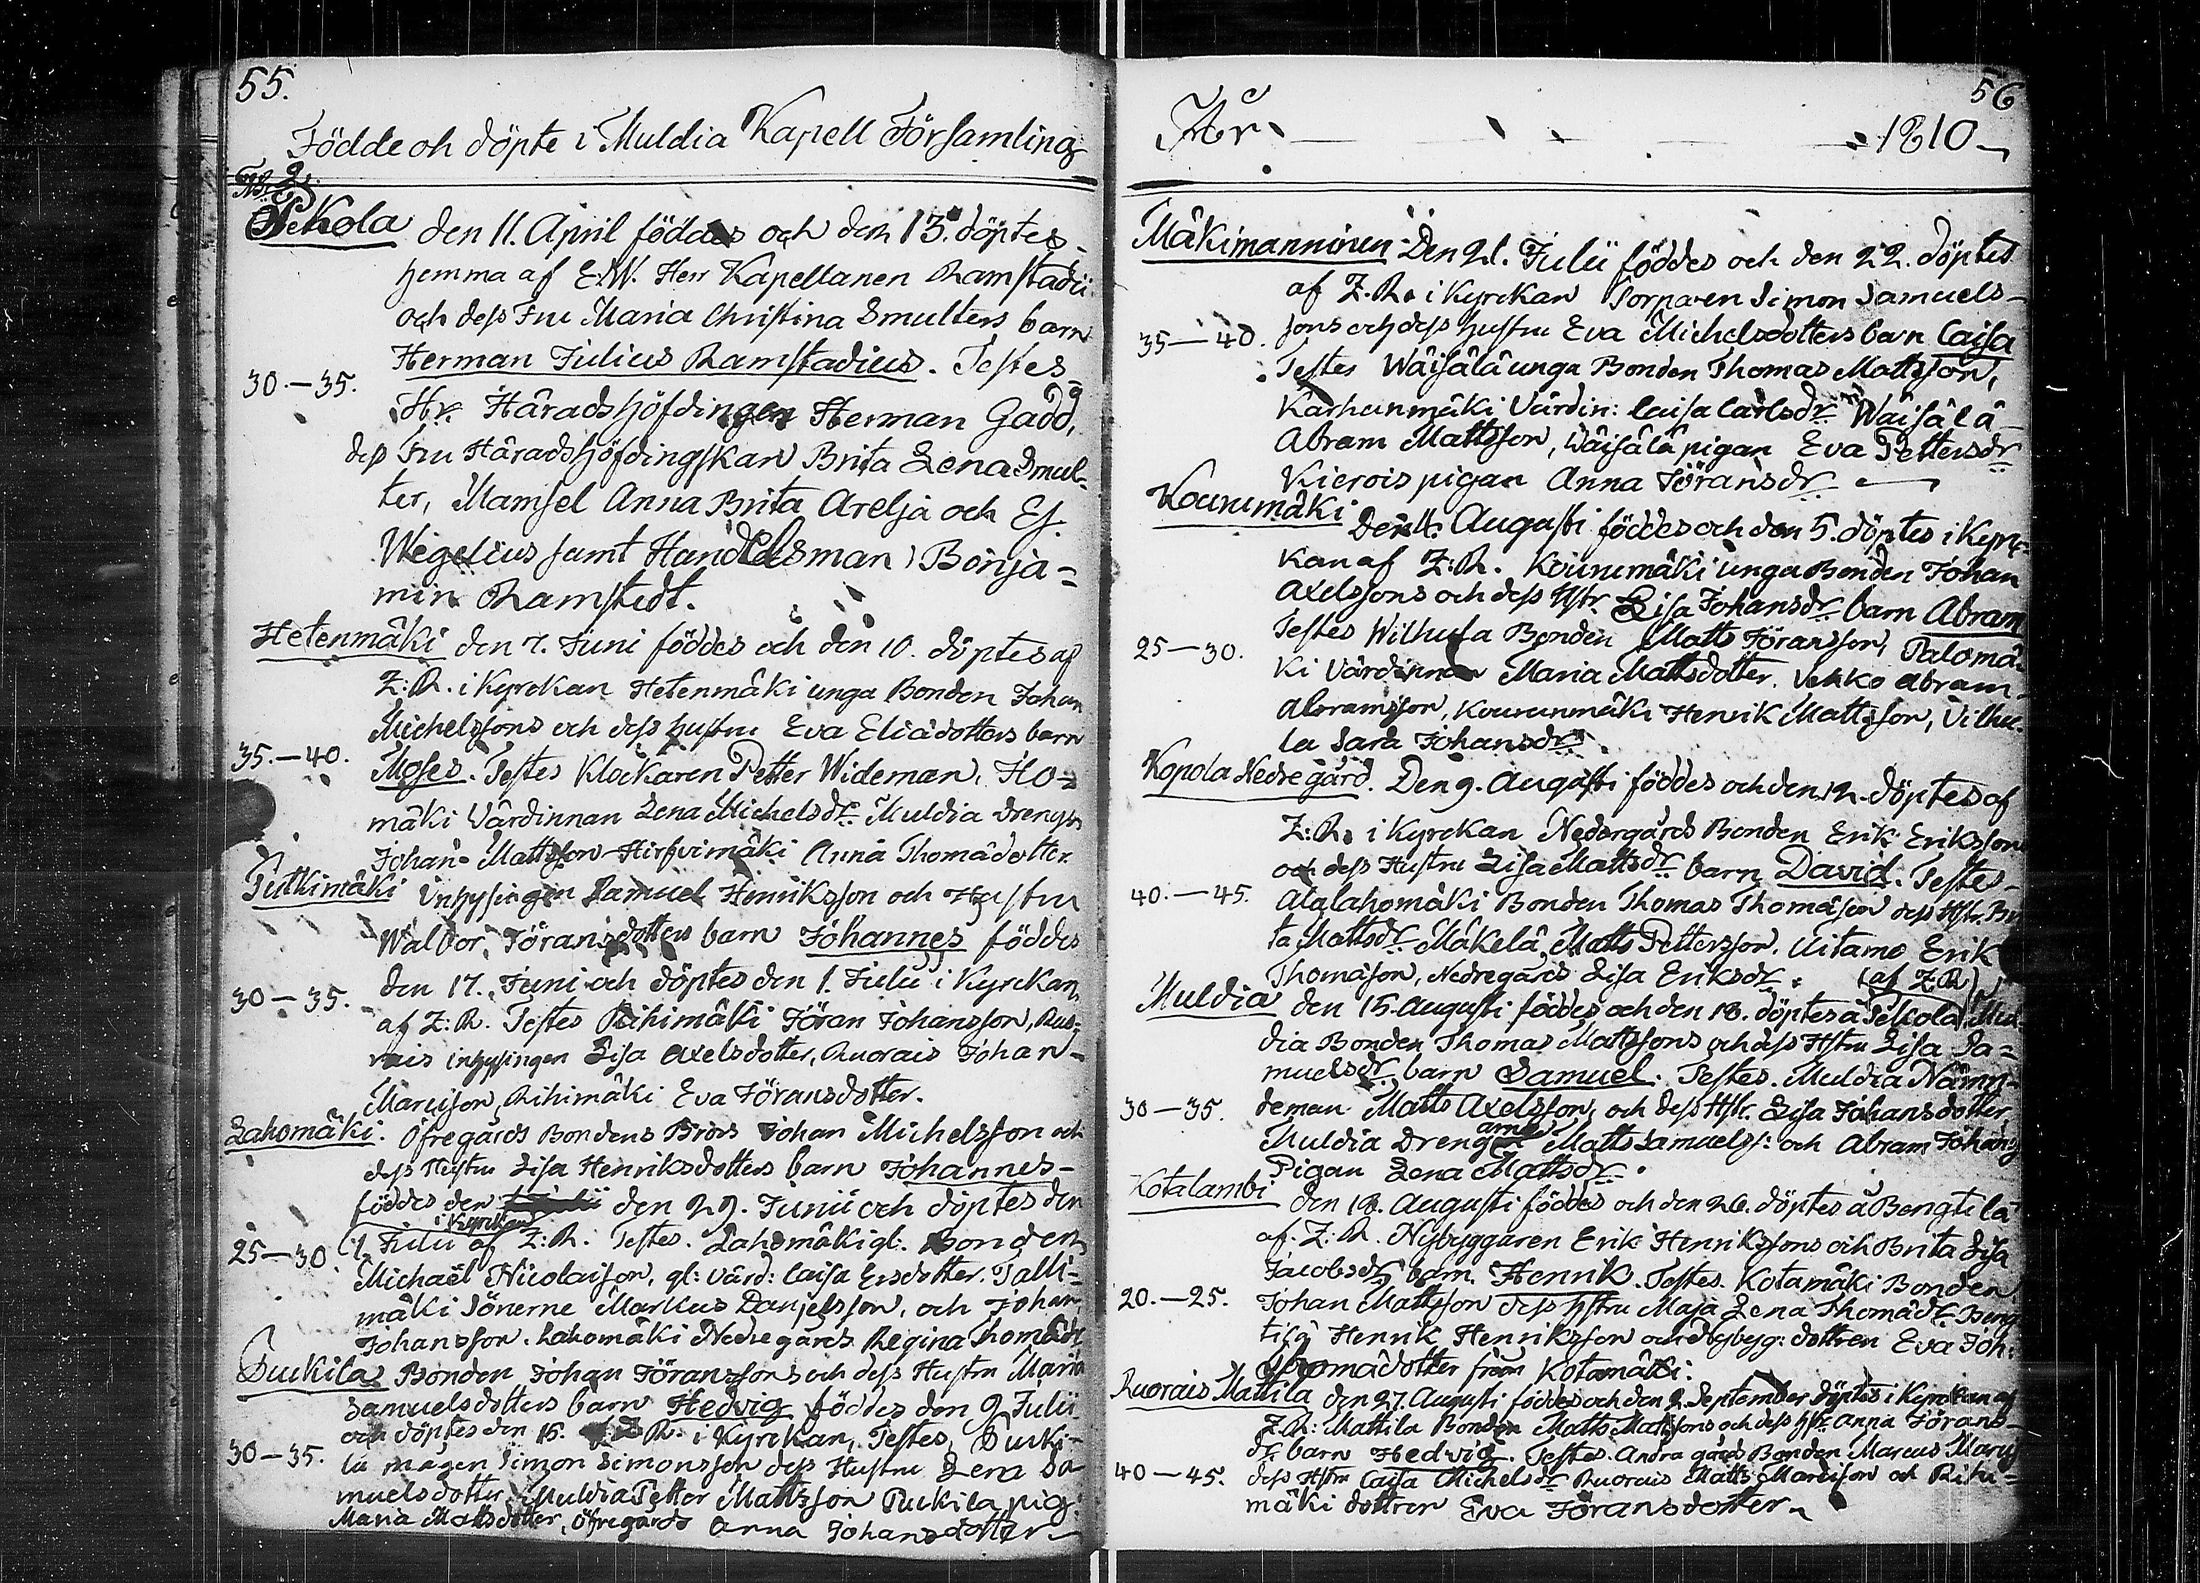 55.
Födde och döpte i Muldia Kapell Församling
Pekola den 11. April föddes och den 13. döptes
hemma af E:W. Herr Kapellanen Ramstadii
och dess Fru Maria Christina Smulters barn
Herman Julius Ramstadius. Testes
30.—35.
Hr. Häradshöfdingen Herman Gadd,
dess Fru Häradshöfdingskan Brita Lena Smul-
ter, Mamsel Anna Brita Arelja och Ej.
Wegelius samt Handelsman Benja=
min Ramstedt.
Hetenmäki den 7. Juni föddes och den 10. döptes af
Z:R. i Kyrckan Hetenmäki unga Bonden Johan
Michelssons och dess hustru Eva Eliædotters barn
35.—40.
Moses. Testes Klockaren Petter Wideman, Ho=
mäki Värdinnan Lena Michelsdr. Muldia drengen
Johan Mattsson Hirfvimäki Anna Thomædotter.
Putkimäki Inhysingen Samuel Henriksson och Hustru
Walbor Jöransdotters barn Johannes föddes
30—35.
den 17. Juni och döptes den 1. Julii i Kyrckan
af Z:R. Testes Rihimäki Jöran Johansson, Ruo-
rais inhysingen Lisa Axelsdotter, Ruorais Johan
Marcisson, Rihimäki Eva Jöransdotter.
Lahomäki. Öfregårds Bondens Brors Johan Michelsson och
dess Hustru Lisa Henriksdotters barn Johannes
föddes den den 29. Junii och döptes den
i Kyrckan
25—30.
1. Julii af Z:R. Testes. Lahomäki gl: Bonden
Michaël Nicolaison, gl: Värd: Caisa Ersdotter. Talli=
mäki Sönerne Markus Danjelsson, och Johan
Johansson. Lahomäki Nedregårds Regina Thomædr.
Puckila Bonden Johan Jöranssons och dess Hustru Maria
Samuelsdotters barn Hedvig föddes den 9 Julii
och döptes den 15. af Z:R. i Kyrckan, Testes, Pucki-
30—35.
la mågen Simon Simonsson dess Hustru Lena Sa
muelsdotter, Muldia Petter Mattsson Puckila pig.
Maria Mattsdotter, Öfregårds Anna Johansdotter
56
År 1810
Mäkimanninen Den 21. Julii föddes och den 22. döptes
af Z.R. i Kyrckan Torparen Simon Samuels-
35—40.
sons och dess hustru Eva Michelsdotters barn Caisa
Testes Wäisälä unga Bonden Thomas Mattsson,
Karhunmäki Värdin: Caisa Carlsdr. Wäisälä
Abram Mattsson, Wäisälä pigan Eva Pettersdr
Kierois pigan Anna Jöransdr
Kourumäki Den 4. Augusti föddes och den 5. döptes i Kyrc-
kan af Z:R. Kourumäki unga Bonden Johan
Axelssons och dess Hstr. Lisa Johansdr barn Abram
25—30.
Testes Wilhula Bonden Matts Jöransson, Palomä-
ki Värdinnan Maria Mattsdotter. Vekko Abram
Abramsson, Kourunmäki Henrik Mattsson, Vilhu-
la Sara Johansdr.
Kopola Nedregård. Den 9. Augusti föddes och den 12. döptes af
Z:R. i Kyrckan Nedergårds Bonden Erik Eriksson
och dess Hustru Lisa Mattsdr barn David. Testes
40.—45.
Alalahomäki Bonden Thomas Thomæson dess Hstr. Bri
ta Mattsdr. Mäkelä Matts Pettersson. Uitamo Erik
Thomæson, Nedregårds Lisa Eriksdr. (af Z.R)
Muldia den 15. Augusti föddes och den 18. döptes å Pekola Mul
dia Bonden Thomas Mattssons och dess Hstru Lisa Sa=
muelsdr. barn Samuel. Testes. Muldia Nämn-
30—35.
deman Matts Axelsson, och dess Hstr. Lisa Johansdotter
Muldia Drengarne Matts Samuelss: och Abram Johans:
Pigan Lena Mattsdr.
Kotalambi den 18. Augusti föddes och den 26. döptes å Bengtilä
af. Z:R. Nybyggaren Erik Henrikssons och Brita Lisa
Jacobsdr barn. Henrik. Testes. Kotamäki Bonden
20.—25.
Johan Mattsson dess hstru Maja Lena Thomædr. Beng
tilä Henrik Henriksson och Nybygg: dottren Eva Joh:
Thomædotter från Kotamäki.
Ruorais Mattila den 27. Augusti föddes och den 2. September döptes i Kyrckan af
Z.R: Mattila Bonden Matts Mattssons och dess hstr Anna Jörans-
dr. barn Hedvig. Testes. Andra gårds Bonden Marcus Marciss
40—45.
dess Hstru Caisa Michelsdr. Ruorais Matts Marcisson och Rihi=
mäki dottren Eva Jöransdotter